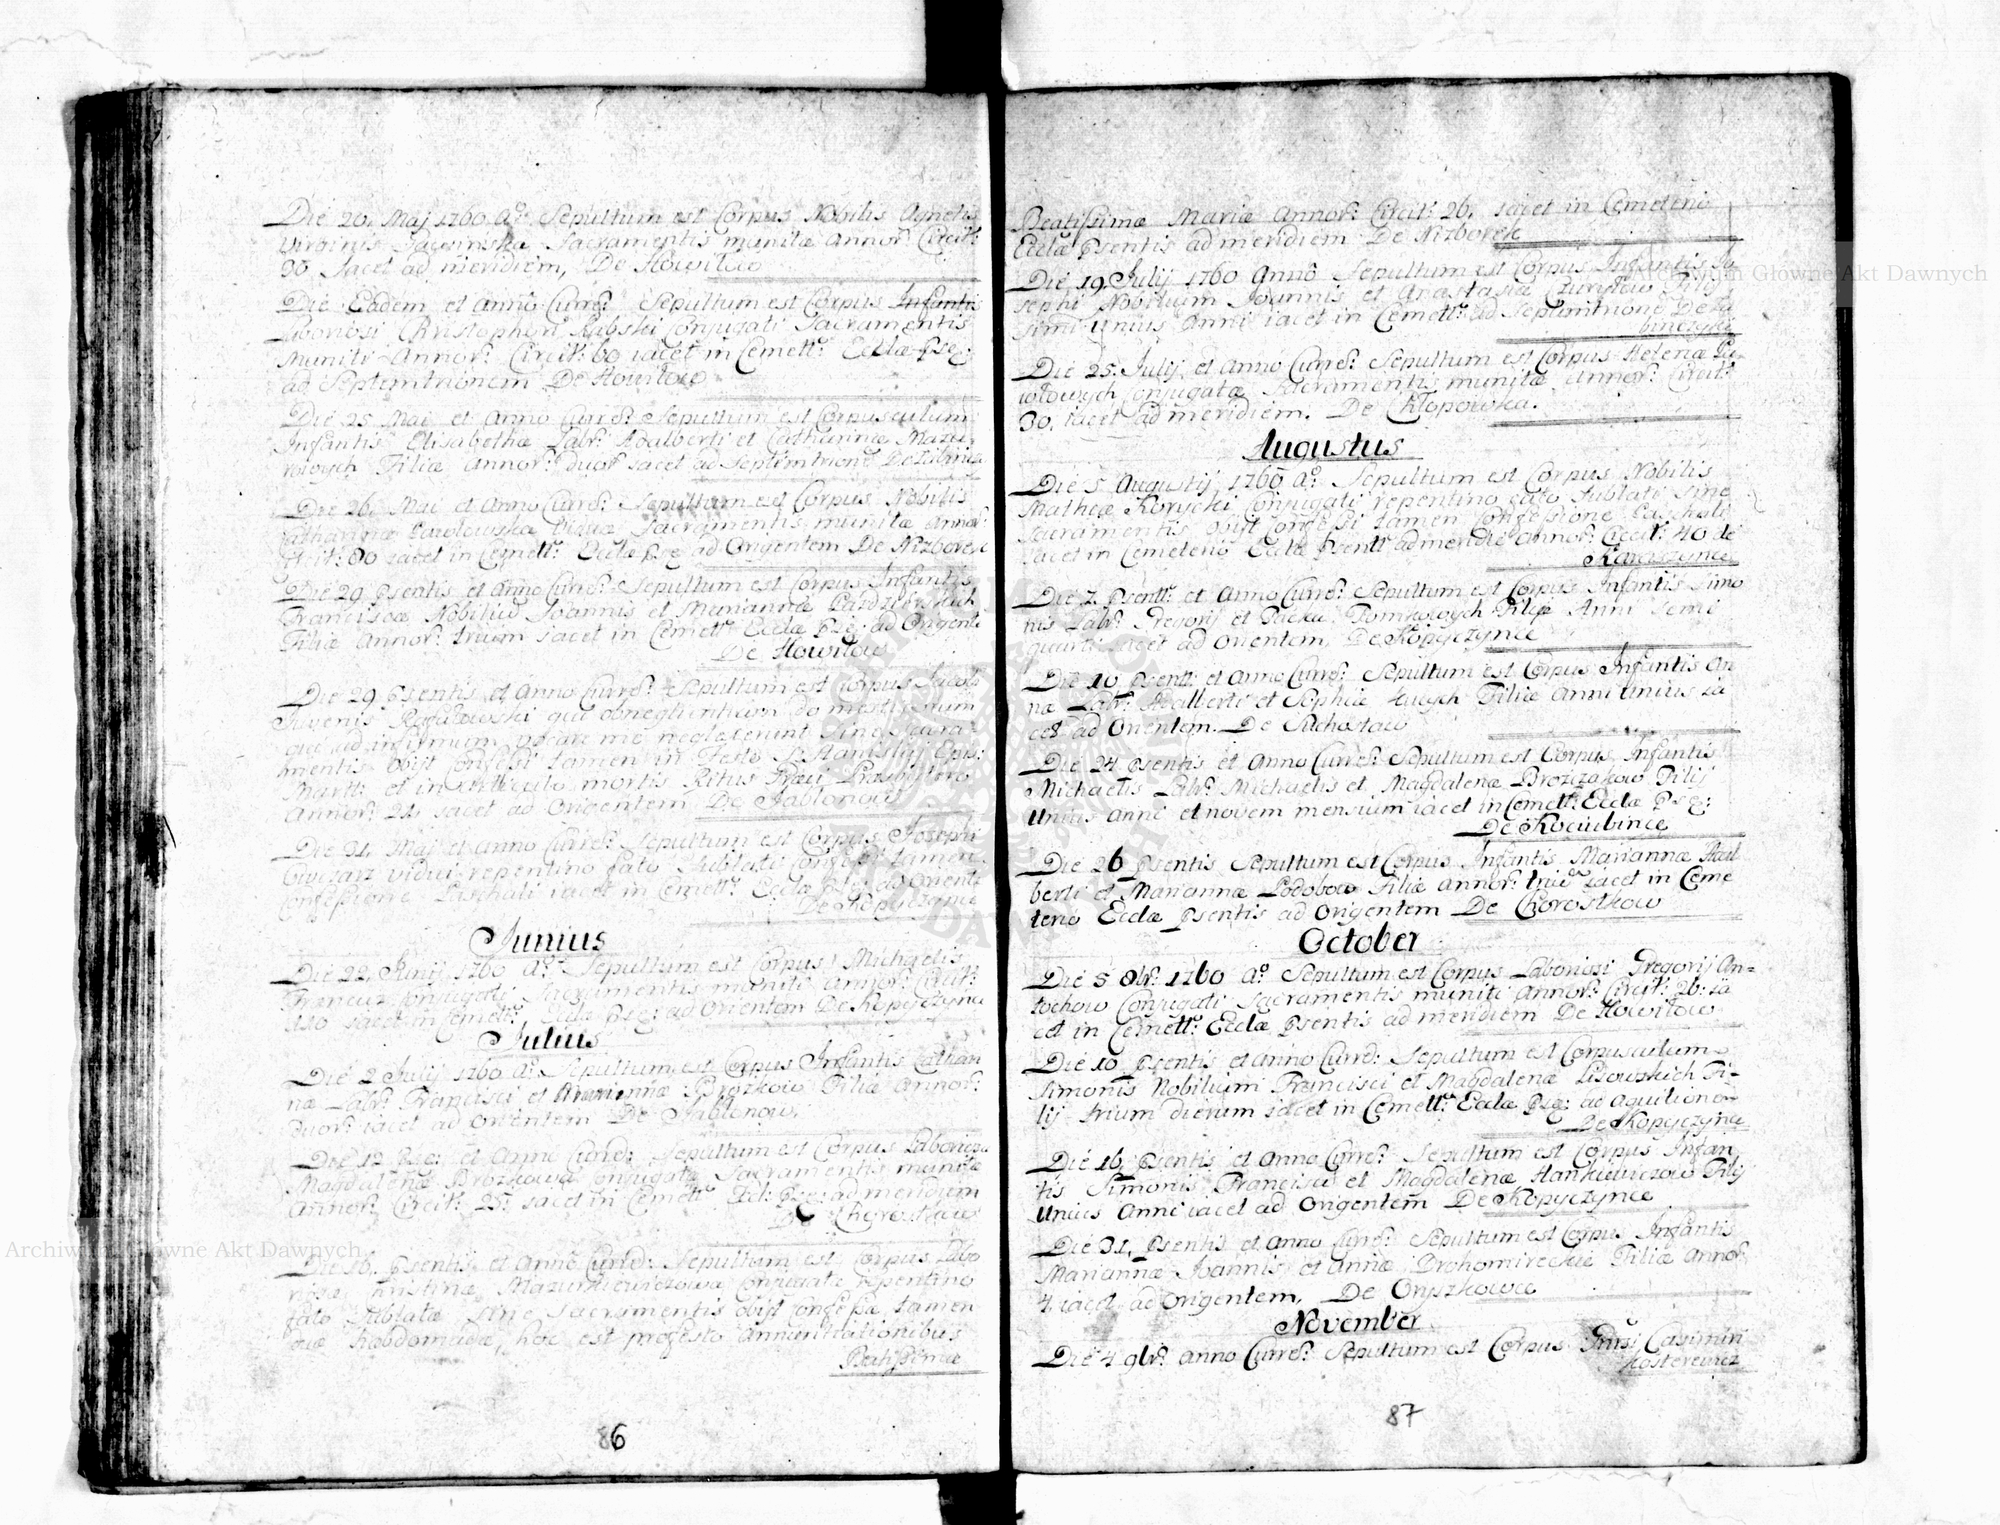 Die 20. Maj 1760 Aº. Sepultum est Corpus Nobilis Agnetis
Virginis Sacramentis munitæ Annor: Circit:
30. Jacet ad meridiem, De Howilow
Die Eadem et Anno Curre: Sepultum est Corpus Infantis
Laboriosi Christophori Rabski Conjugati Sacramentis
Muniti Annor: Circit: 60 iacet in Cemett: Ecclæ Pse:
ad Septemtrionem De Howilow
Die 25 Maii et Anno Curre: Sepultum est Corpusculum
Infantis Elisabethæ Labr: Adalberti et Catharinæ Mazu
rowych Filiæ Annor: duor Jacet ad Septemtrione
Die 26. Maii et Anno Curre: Sepultum est Corpus Nobilis
Catharinæ Sacramentis munitæ Annor:
Circit: 80 iacet in Cemett: Ecclæ Pse: ad Origentem De Nizborek
Die 29 Psentis et Anno Curre: Sepultum est Corpus Infantis
Franciscæ Nobiliu Joannis et Mariannæ
Filiæ Annor: trium Jacet in Cemett: Ecclæ Pse: ad Origente
De Howilow
Die 29 Psentis et Anno Curre: Sepultum est Corpus Jacobi
Juvenis qui ob negligentiam domesticorum
qui ad infirmum vocare me neglexerunt Sine Sacra
mentis obijt Confessi tamen in Festo S. Stanislaj Epp:
Martt: et in Articulo mortis Ritus Græci Præsbitero
Annor: 24. Jacet ad Origentem De Jablonow
Die 31. Maj et Anno Curre: Sepultum est Corpus Josephi
vidui repentino fato Sublati Confessi tamen
Confessione Paschali iacet in Cemett: Ecclæ Pse: ad Oriente
De Kopyczynce
Junius
Die 22. Junij 1760 Aº. Sepultum est Corpus Michaelis
Conjugati Sacramentis muniti Annor: Circit:
110 iacet in Cemett: Ecclæ Pse: ad Orientem De Kopyczynce
Julius
Die 2 Julij 1760 Aº. Sepultum est Corpus Infantis Cathari
næ Labr: Francisci et Mariannæ Brozkow Filiæ Annor:
duor: iacet ad Orientem De Jablonow.
Die 12 Pse: et Anno Curre: Sepultum est Corpus Laboriosæ
Magdalenæ Brozkowa Conjugatæ Sacramentis munitæ
Annor: Circit: 25: Jacet in Cemett: Ecl: Pse: ad meridiem
De Chorostkow
Die 16. Psentis et Anno Curre: Sepultum est Corpus Labo
riosæ Christinæ Mazurkiewiczowa Conjugatæ repentino
fato Sublatæ Sine Sacramentis obijt Confessa tamen
Hebdomada, hoc est profesto Annuntiationibus
Beatissimæ
86
Beatissimæ Mariæ Annor: Circit: 26. iacet in Cemeterio
Ecclæ Psentis ad meridiem De Nizborek
Die 19. Julij 1760 Anno Sepultum est Corpus Infantis Jo
sephi Nobilium Joannis et Anastasiæ Filij
unius Anni iacet in Cemett: ad Septimtrione
Die 25. Julij et Anno Curre: Sepultum est Corpus Helenæ Pa
wlowych Conjugatæ Sacramentis munitæ Annor: Circit:
30. iacet ad meridiem. De Chłopowka.
Augustus
Die 5 Augustij 1760 Aº. Sepultum est Corpus Nobilis
Matheæ Korycki Conjugati repentino fato Sublati Sine
Sacramentis obijt Confessi tamen Confessione Paschali
Jacet in Cemeterio Ecclæ Psentt: ad meridie Annor: Circit: 40 de
Karaszynce
Die 7. Psentt: et Anno Curre: Sepultum est Corpus Infantis Simo
nis Labr: Gregorij et Filiæ Anni Semi
quarti iacet ad Orientem. De Kopyczynce
Die 10 Psentt: et Anno Curre: Sepultum est Corpus Infantis An
næ Labr: Adalberti et Sophiæ Filiæ Anni unius ia
cet ad Orientem. De Suchostaw
Die 24 Psentis et Anno Curre: Sepultum est Corpus Infantis
Michaelis Labr: Michaelis et Magdalenæ Filij
Unius Anni et novem mensium iacet in Cemett: Ecclæ Pse:
De Kociubince
Die 26 Psentis Sepultum est Corpus Infantis Mariannæ Adal
berti et Mariannæ Podobow Filiæ Annor: triu iacet in Ceme
terio Ecclæ Psentis ad Origentem De Chorostkow
October
Die 5 8br: 1760 Aº. Sepultum est Corpus Laboriosi Gregorij An=
tochow Conjugati Sacramentis muniti Annor: Circit: 26: ia
cet in Cemett: Ecclæ Psentis ad meridiem De Howilow
Die 10 Psentis et Anno Curre: Sepultum est Corpusculum
Simonis Nobilium Francisci et Magdalenæ Lisowskich Fi-
lij trium dierum iacet in Cemett: Ecclæ Pse: ad Aquilionem
De Kopyczynce
Die 16. Psentis et Anno Curre: Sepultum est Corpus Infan
tis Simonis Francisci et Magdalenæ Hankiewiczow Filij
Unius Anni iacet ad Origentem De Kopyczynce
Die 31. Psentis et Anno Curre: Sepultum est Corpus Infantis
Mariannæ Joannis et Annæ Drohomireckie Filiæ Annor:
4. iacet ad Origentem, De Oryszkowce
November
Die 4 9br: Anno Curre: Sepultum est Corpus Casimiri
Kosterewicz
87
Archiwum Główne Akt Dawnych
Archiwum Główne Akt Dawnych